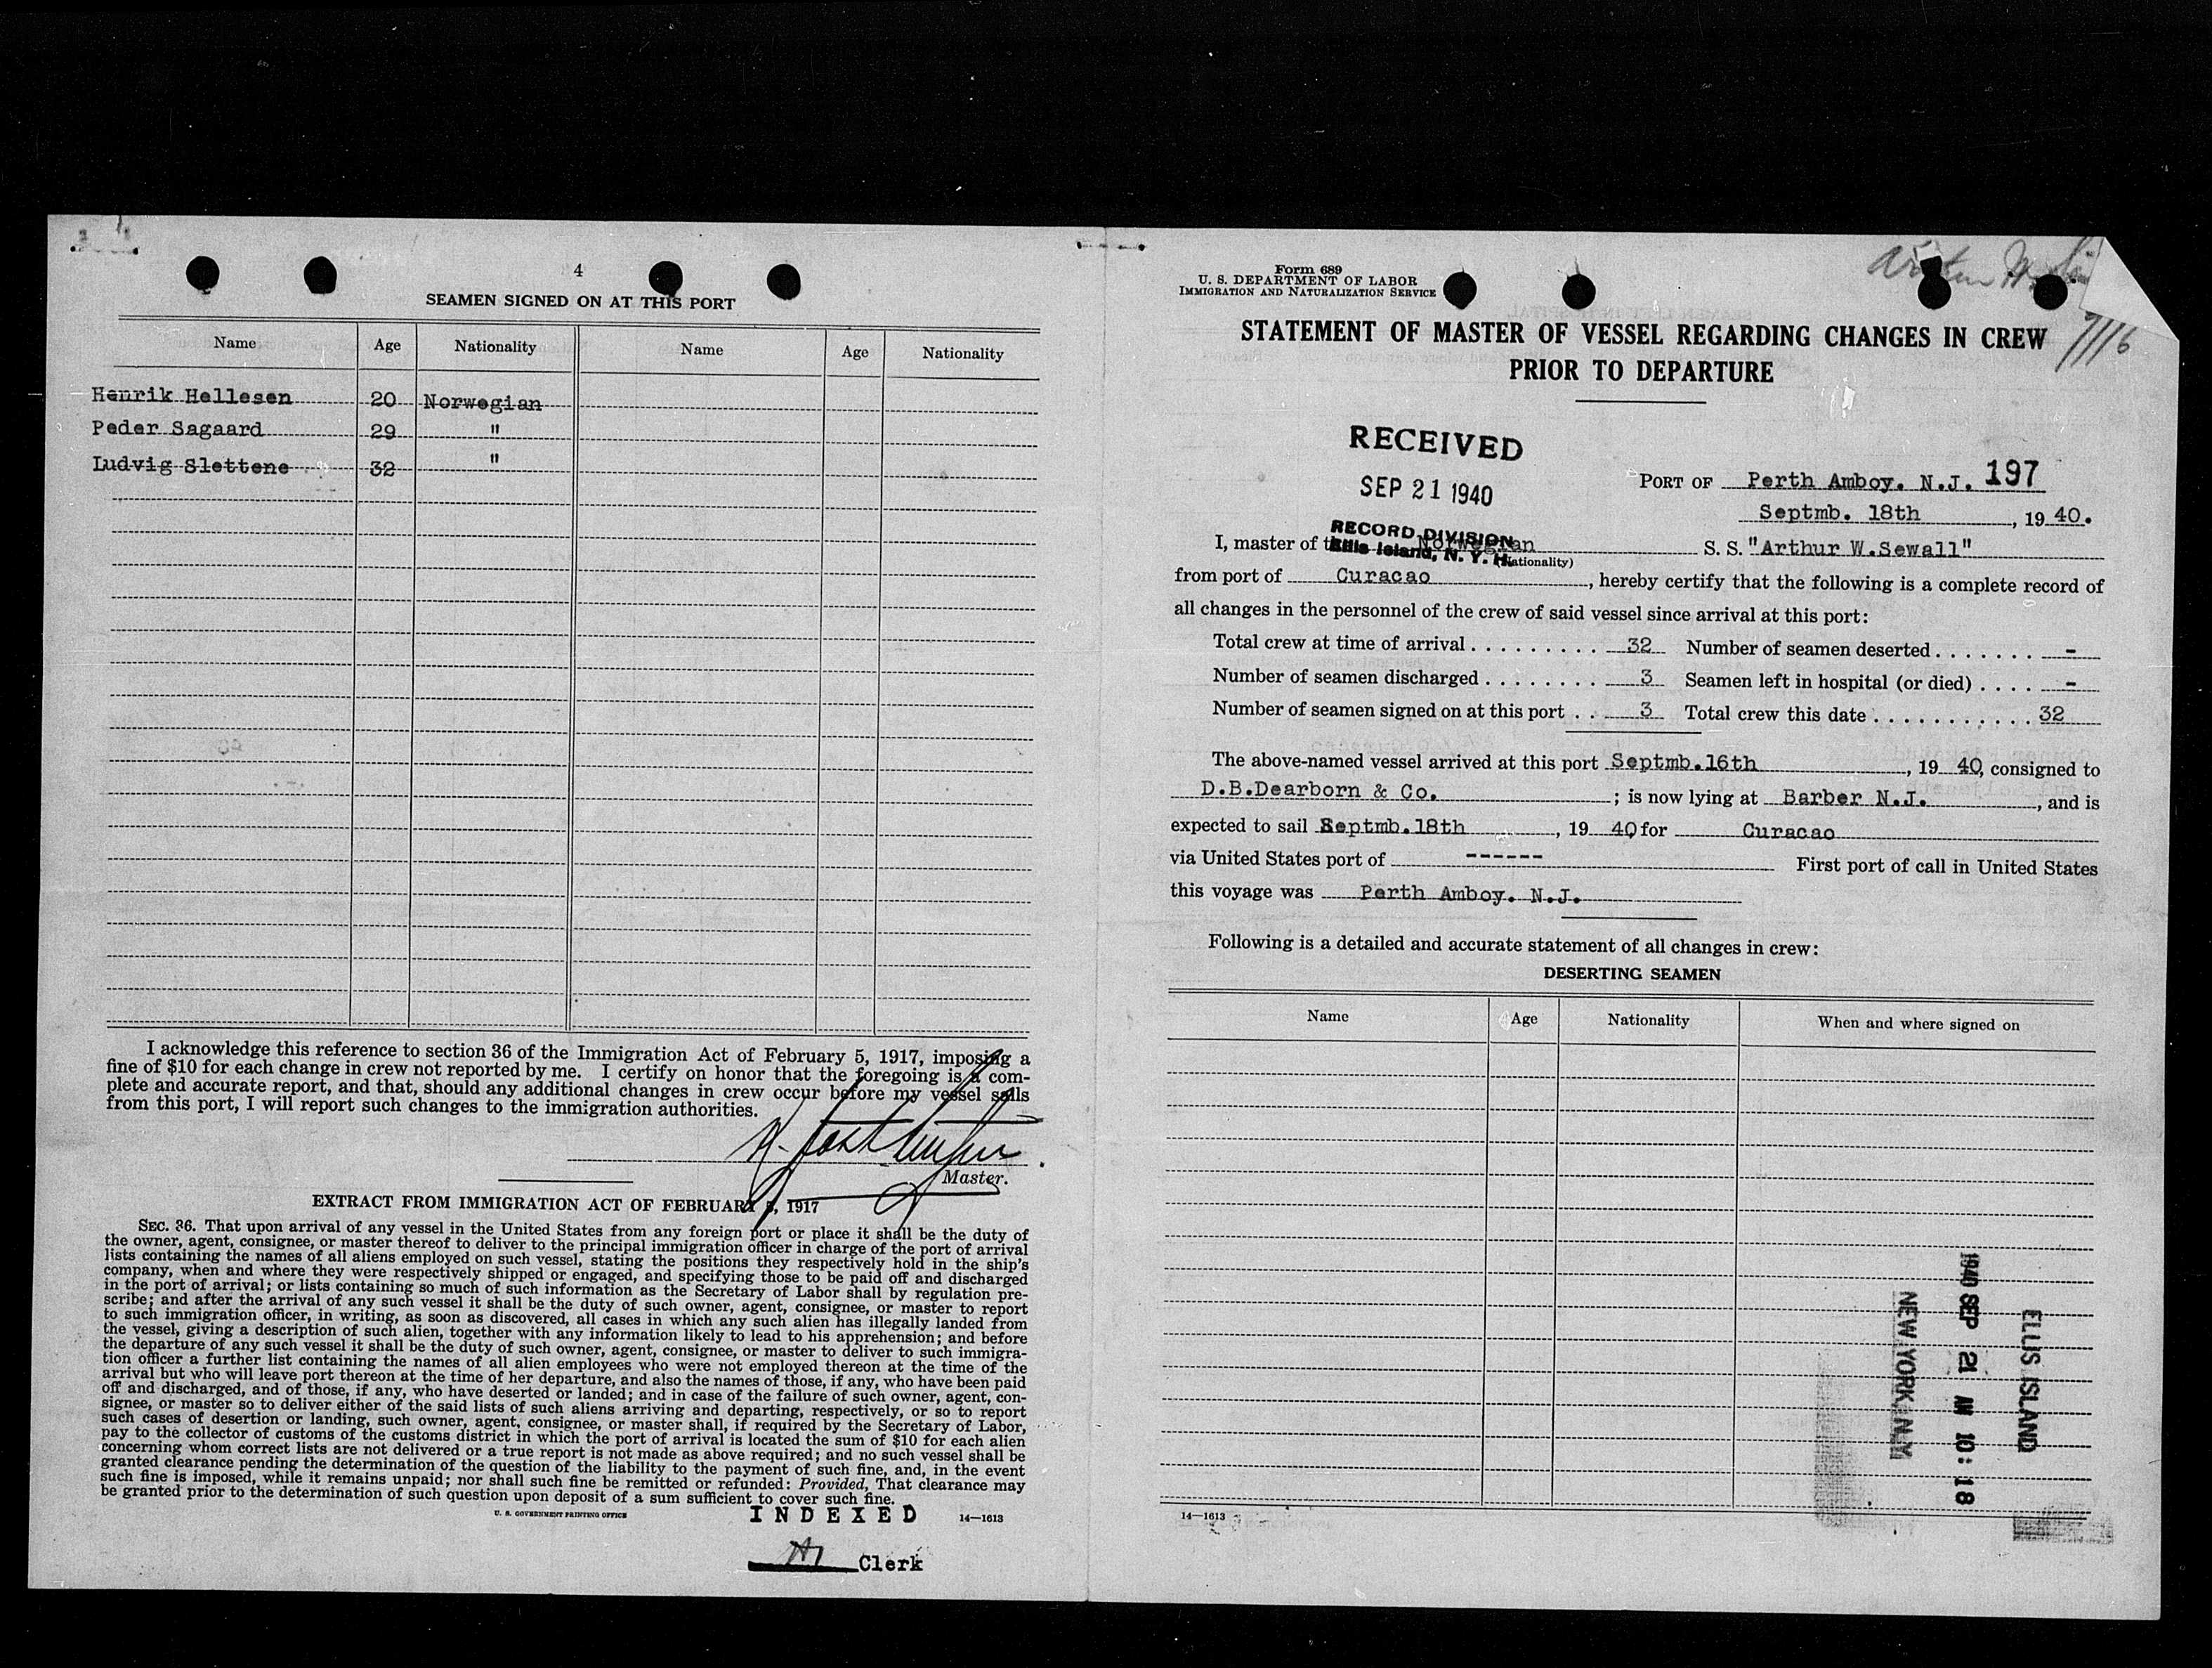 4
SEAMEN SIGNED ON AT THIS PORT
Name Age Nationality Name Age Nationality
Henrik Hellesen 20 Norwegian
Peder Sagaard 29 "
Ludvig Slettene 32 "
I acknowledge this reference to section 36 of the Immigration Act of February 5, 1917, imposing a
fine of $10 for each change in crew not reported by me. I certify on honor that the foregoing is a com-
plete and accurate report, and that, should any additional changes in crew occur before my vessel sails
from this port, I will report such changes to the immigration authorities.
Master.
EXTRACT FROM IMMIGRATION ACT OF FEBRUARY 5, 1917
SEC. 36. That upon arrival of any vessel in the United States from any foreign port or place it shall be the duty of
the owner, agent, consignee, or master thereof to deliver to the principal immigration officer in charge of the port of arrival
lists containing the names of all aliens employed on such vessel, stating the positions they respectively hold in the ship's
company, when and where they were respectively shipped or engaged, and specifying those to be paid off and discharged
in the port of arrival; or lists containing so much of such information as the Secretary of Labor shall by regulation pre-
scribe; and after the arrival of any such vessel it shall be the duty of such owner, agent, consignee, or master to report
to such immigration officer, in writing, as soon as discovered, all cases in which any such alien has illegally landed from
the vessel, giving a description of such alien, together with any information likely to lead to his apprehension; and before
the departure of any such vessel it shall be the duty of such owner, agent, consignee, or master to deliver to such immigra-
tion officer a further list containing the names of all alien employees who were not employed thereon at the time of the
arrival but who will leave port thereon at the time of her departure, and also the names of those, if any, who have been paid
off and discharged, and of those, if any, who have deserted or landed; and in case of the failure of such owner, agent, con-
signee, or master so to deliver either of the said lists of such aliens arriving and departing, respectively, or so to report
such cases of desertion or landing, such owner, agent, consignee, or master shall, if required by the Secretary of Labor,
pay to the collector of customs of the customs district in which the port of arrival is located the sum of $10 for each alien
concerning whom correct lists are not delivered or a true report is not made as above required; and no such vessel shall be
granted clearance pending the determination of the question of the liability to the payment of such fine, and, in the event
such fine is imposed, while it remains unpaid; nor shall such fine be remitted or refunded: Provided, That clearance may
be granted prior to the determination of such question upon deposit of a sum sufficient to cover such fine.
U. S. GOVERNMENT PRINTING OFFICE 14—1613
INDEXED
Clerk
Form 689
U. S. DEPARTMENT OF LABOR
IMMIGRATION AND NATURALIZATION SERVICE
STATEMENT OF MASTER OF VESSEL REGARDING CHANGES IN CREW
PRIOR TO DEPARTURE
RECEIVED
SEP 21 1940
RECORD DIVISION
Ellis Island, N. Y. H.
PORT OF Perth Amboy. N.J. 197
Septmb. 18th, 19 40.
I, master of the Norwegian S. S. "Arthur W.Sewall"
(Nationality)
from port of Curacao, hereby certify that the following is a complete record of
all changes in the personnel of the crew of said vessel since arrival at this port:
Total crew at time of arrival . . . . . . . . . 32 Number of seamen deserted . . . . . . . -
Number of seamen discharged . . . . . . . . 3 Seamen left in hospital (or died) . . . . -
Number of seamen signed on at this port . . 3 Total crew this date . . . . . . . . . . . 32
The above-named vessel arrived at this port Septmb.16th, 19 40, consigned to
D.B.Dearborn & Co.; is now lying at Barber N.J., and is
expected to sail Septmb.18th, 19 40 for Curacao
via United States port of ------ First port of call in United States
this voyage was Perth Amboy. N.J.
Following is a detailed and accurate statement of all changes in crew:
DESERTING SEAMEN
Name Age Nationality When and where signed on
ELLIS ISLAND
1940 SEP 21 AM 10:18
NEW YORK N.Y
14—1613